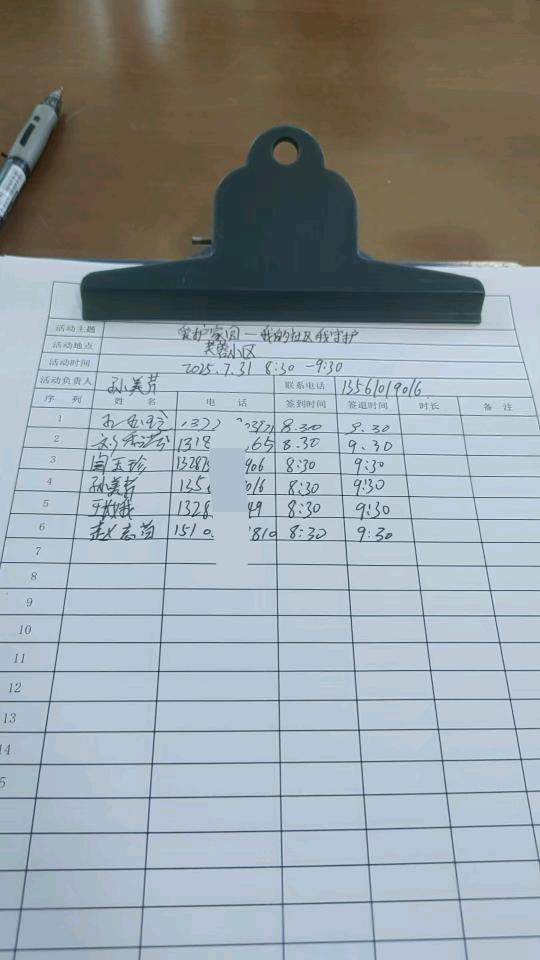 活动主题 爱护家园—我的社区我守护
活动地点 芙蓉小区
活动时间 2025.7.31 8:30 -9:30
活动负责人 孙美芹 联系电话 13561019016
序 列 姓 名 电 话 签到时间 签退时间 时长 备 注
1 8.30 9.30
2 1318 65 8.30 9.30
3 闫玉珍 13287 906 8:30 9:30
4 孙美芹 135 016 8:30 9:30
5 1328 49 8:30 9:30
6 赵志苗 1510 810 8:30 9:30
7
8
9
10
11
12
13
14
5